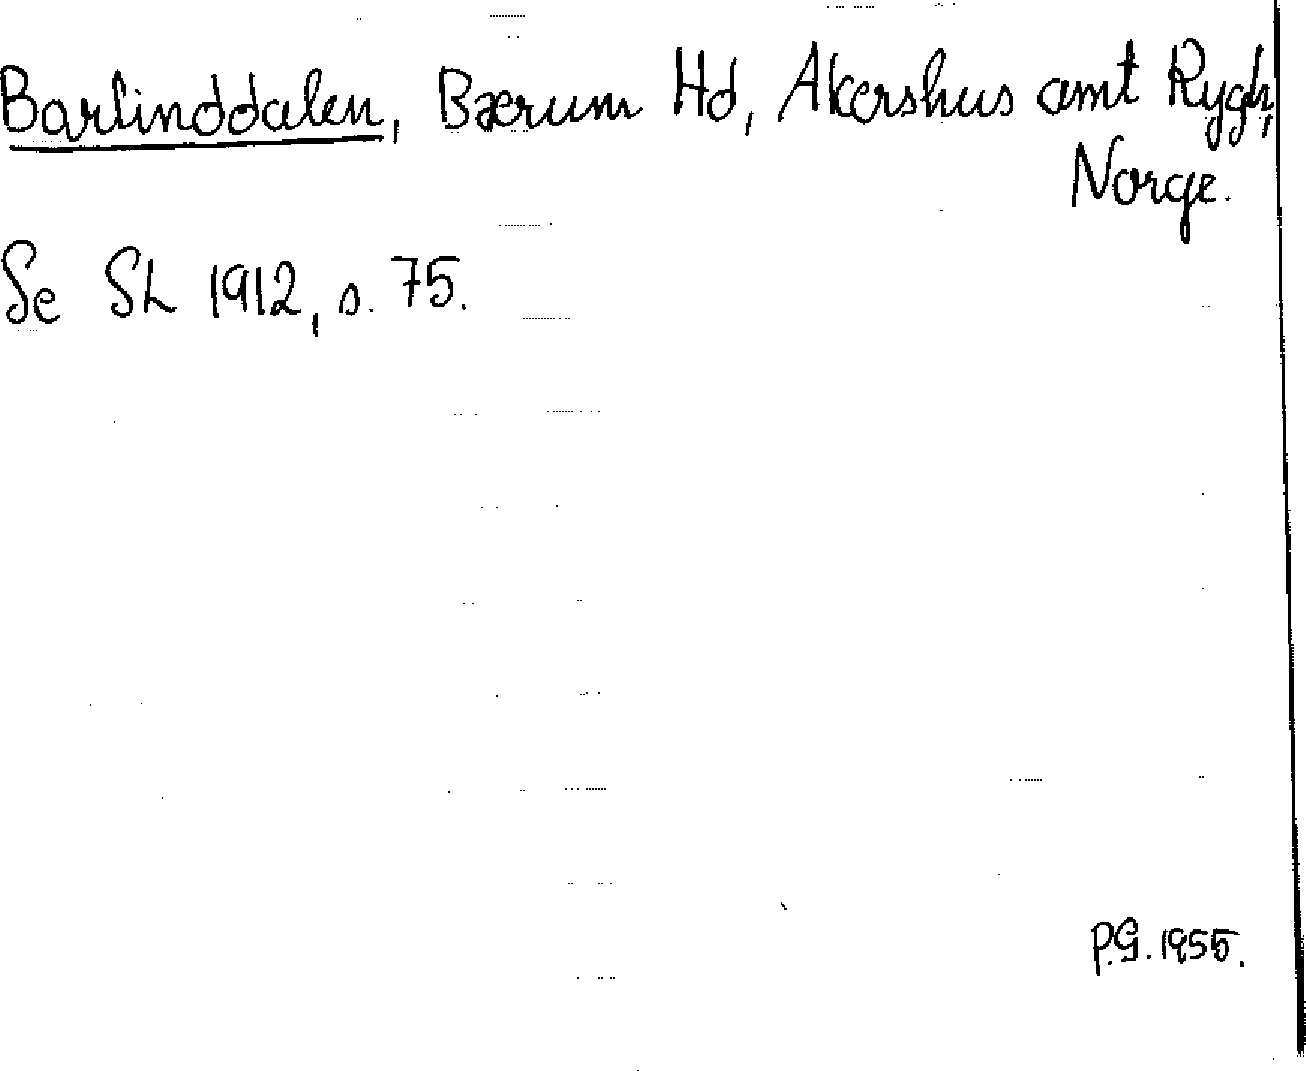 Barlinddalen, Bærum Hd, Akershus amt Rygh,
Norge.
Se SL 1912, s. 75.
P.G. 1955.